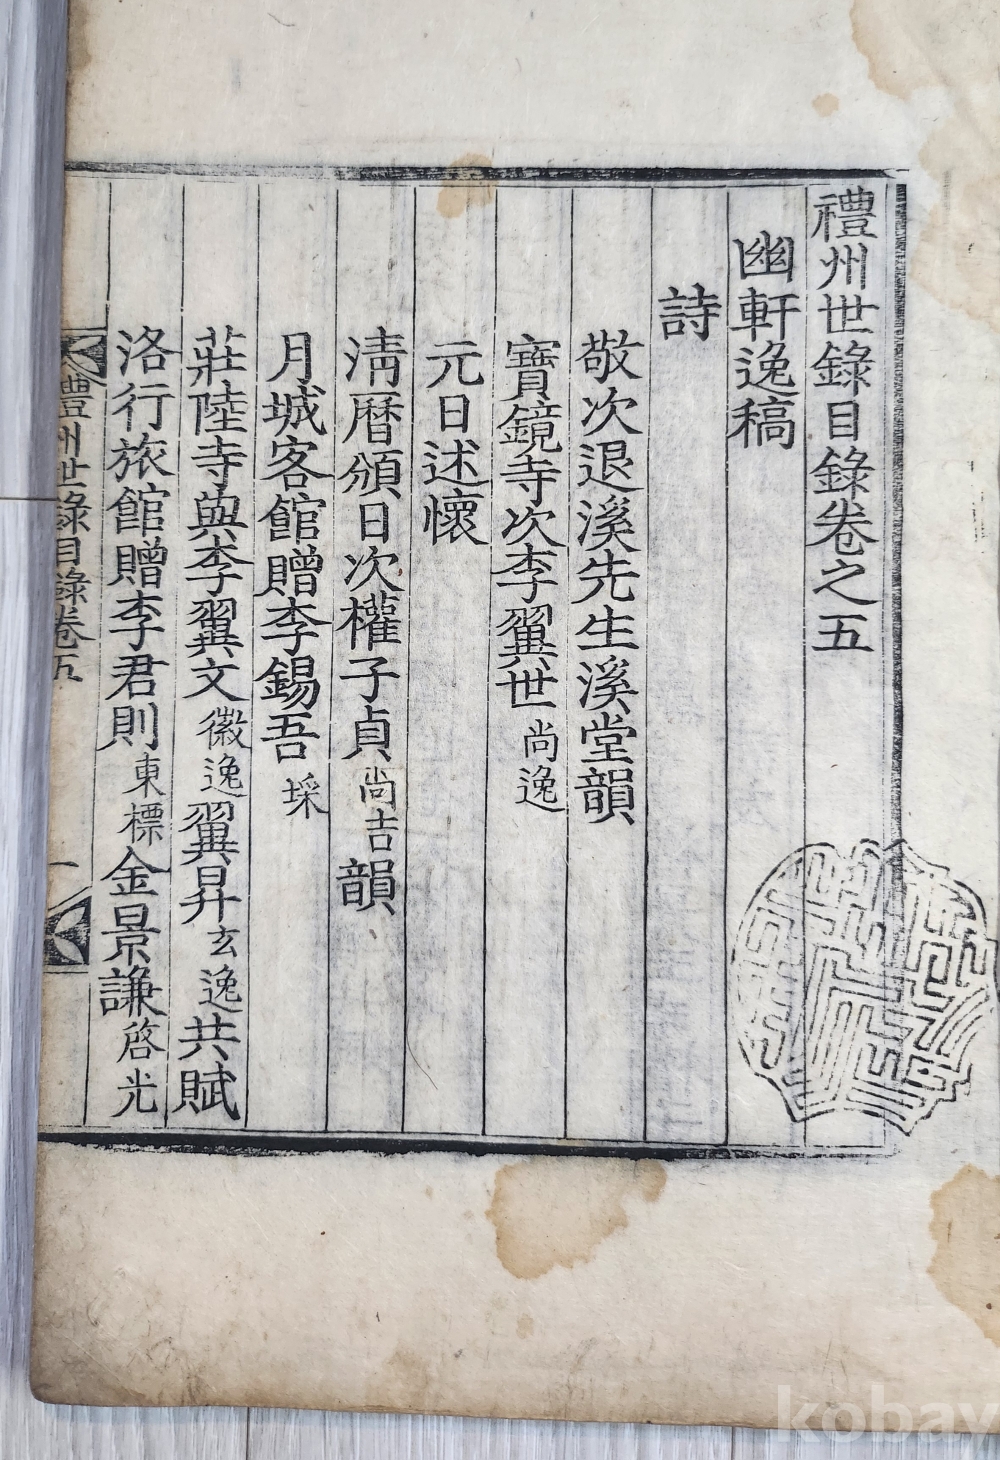 禮州世錄目錄卷之五
幽軒逸稿
詩
敬次退溪先生溪堂韻
寶鏡寺次李翼世尚逸
元日述懷
淸曆頒日次權子貞尚吉韻
月城客館贈李錫吾埰
莊陸寺與李翼文徽逸翼昇玄逸共賦
洛行旅館贈李君則東標金景謙啓光
禮州世錄目錄卷五
一
kobay